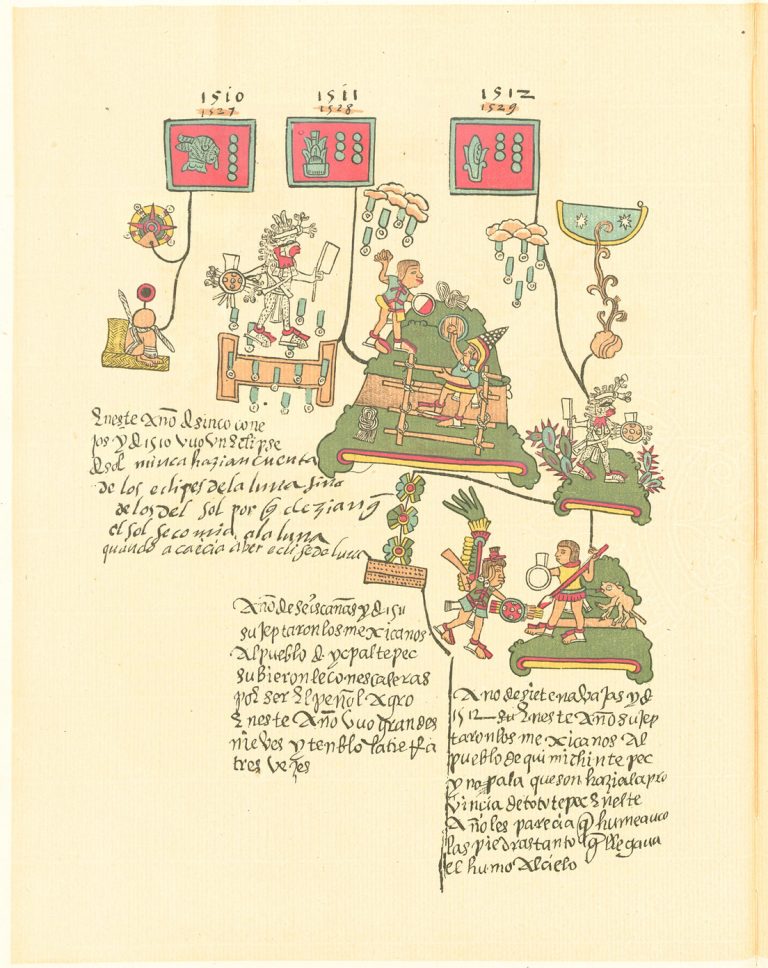 1510
1527
1511
1528
1512
1529
Eneste Año d sinco cone
jos y d 1510 vuo vn Eclipse
d sol nunca hazian cuenta
de los eclipses de la luna sino
de los del sol por q dezian q
el sol se comia a la luna
quando acaecia aber eclise de luna
Año de seis cañas y d 1511
sujetaron los mexicanos
Al pueblo d ycpaltepec
subieronle con escaleras
por ser El peñol Agro
Eneste Año vuo grandes
nieves y tenblo la tierra
tres vezes
Año de siete navajas y d
1512 Eneste Año sujep
taron los mexicanos Al
pueblo de quimichintepec
y nopala que son hazia la pro
vincia de tototepec Eneste
Año les parecia q humeavã
las piedras tanto q llegava
el humo Al cielo